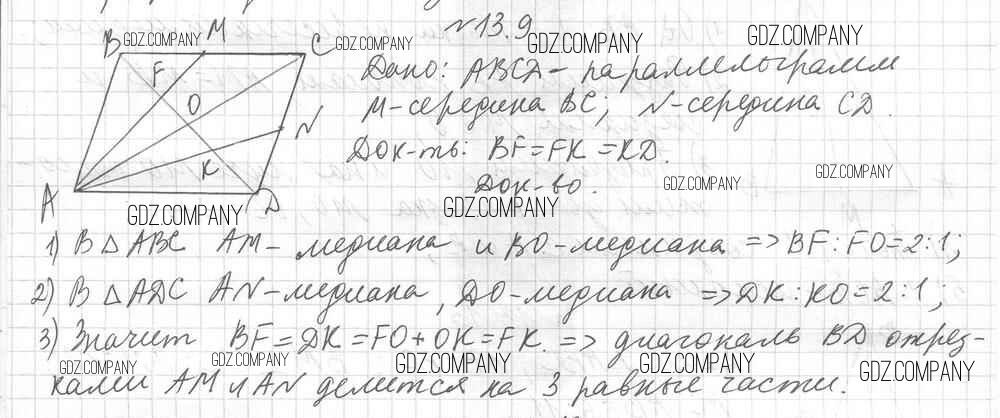 №13.9
Дано: ABCD - параллелограмм
M-середина BC; N-середина CD.
Док-ть: BF=FK=KD.
Док-во.
B M C
F
O
N
K
A D
1) В △ABC AM- медиана и BO-медиана => BF:FO=2:1;
2) В △ADC AN-медиана, DO-медиана => DK:KO=2:1;
3) Значит BF=DK=FO+OK=FK. => диагональ BD отрез-
ками AM и AN делится на 3 равные части.
GDZ.COMPANY
GDZ.COMPANY
GDZ.COMPANY
GDZ.COMPANY
GDZ.COMPANY
GDZ.COMPANY
GDZ.COMPANY
GDZ.COMPANY
GDZ.COMPANY
GDZ.COMPANY
GDZ.COMPANY
GDZ.COMPANY
GDZ.COMPANY